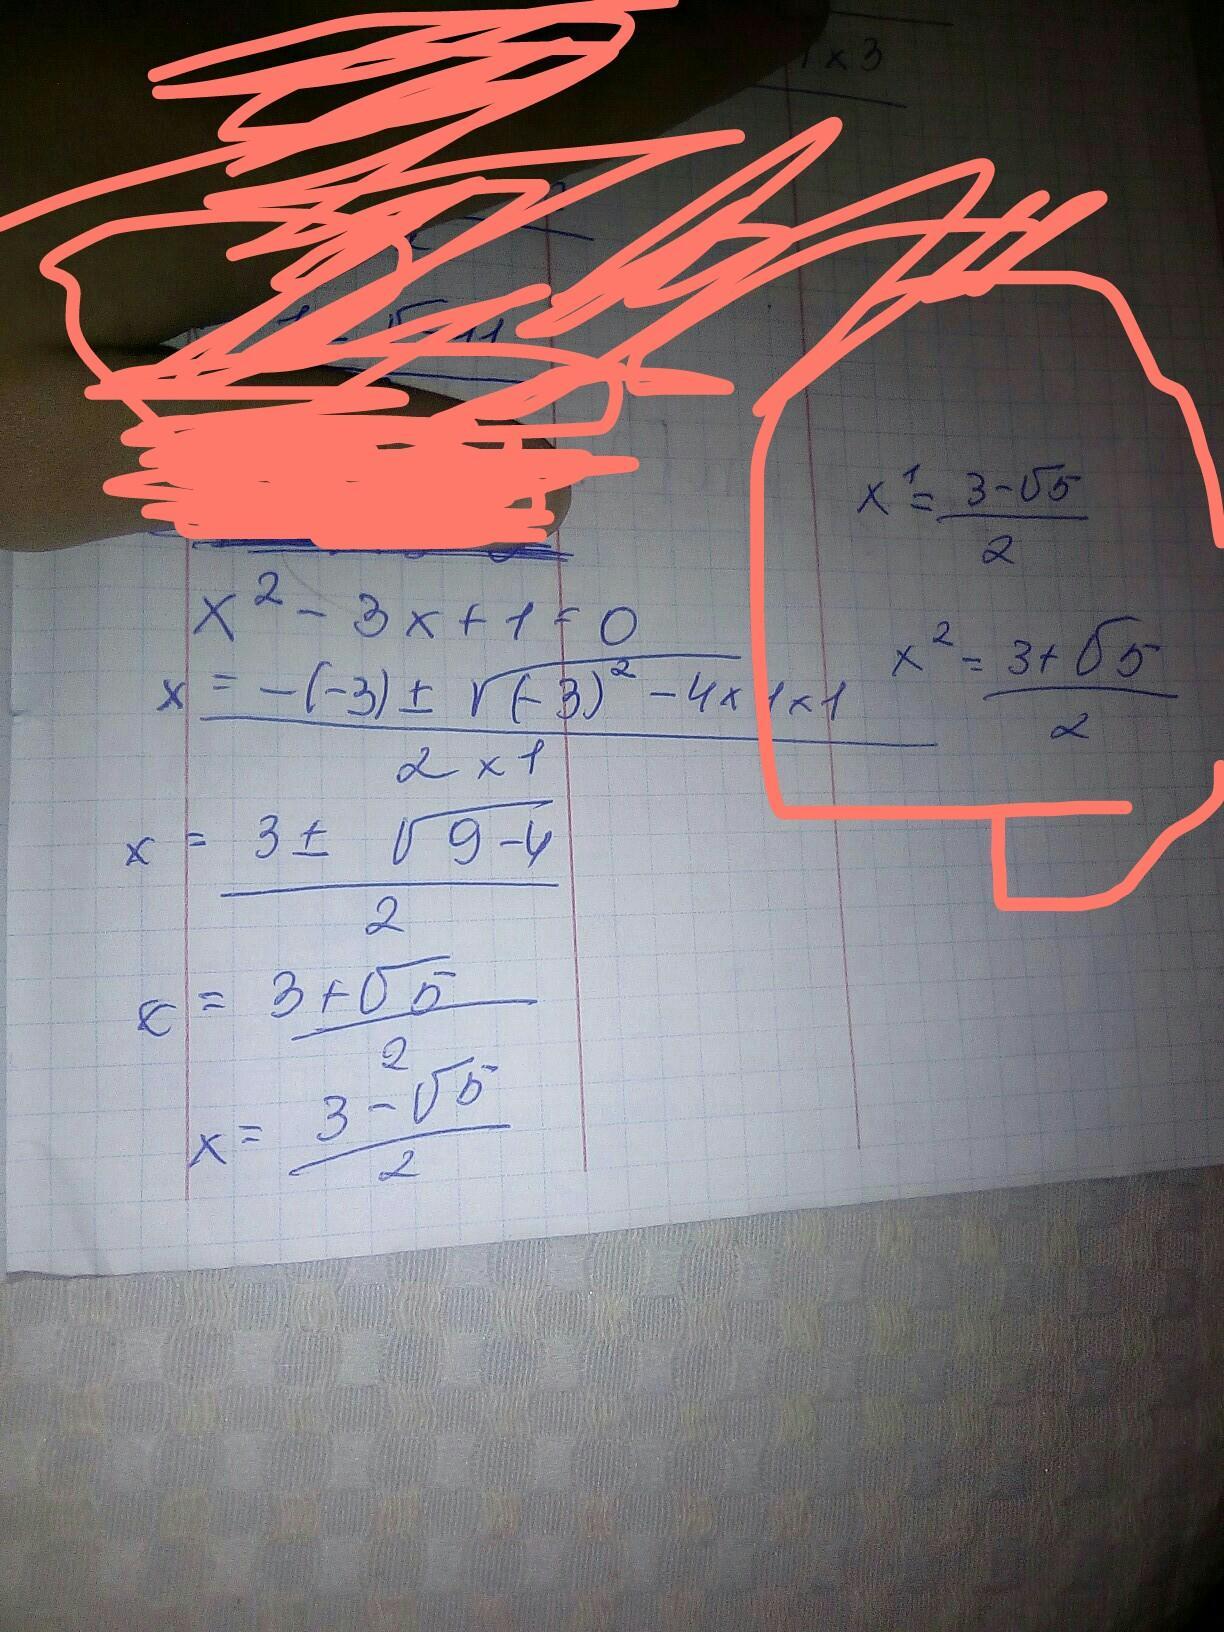 x 3
√-11
x² - 3x + 1 = 0
x = -(-3) ± √(-3)² - 4x1x1
2 x 1
x = 3 ± √9-4
2
x = 3+√5
2
x = 3-√5
2
x¹ = 3-√5
2
x² = 3+√5
2